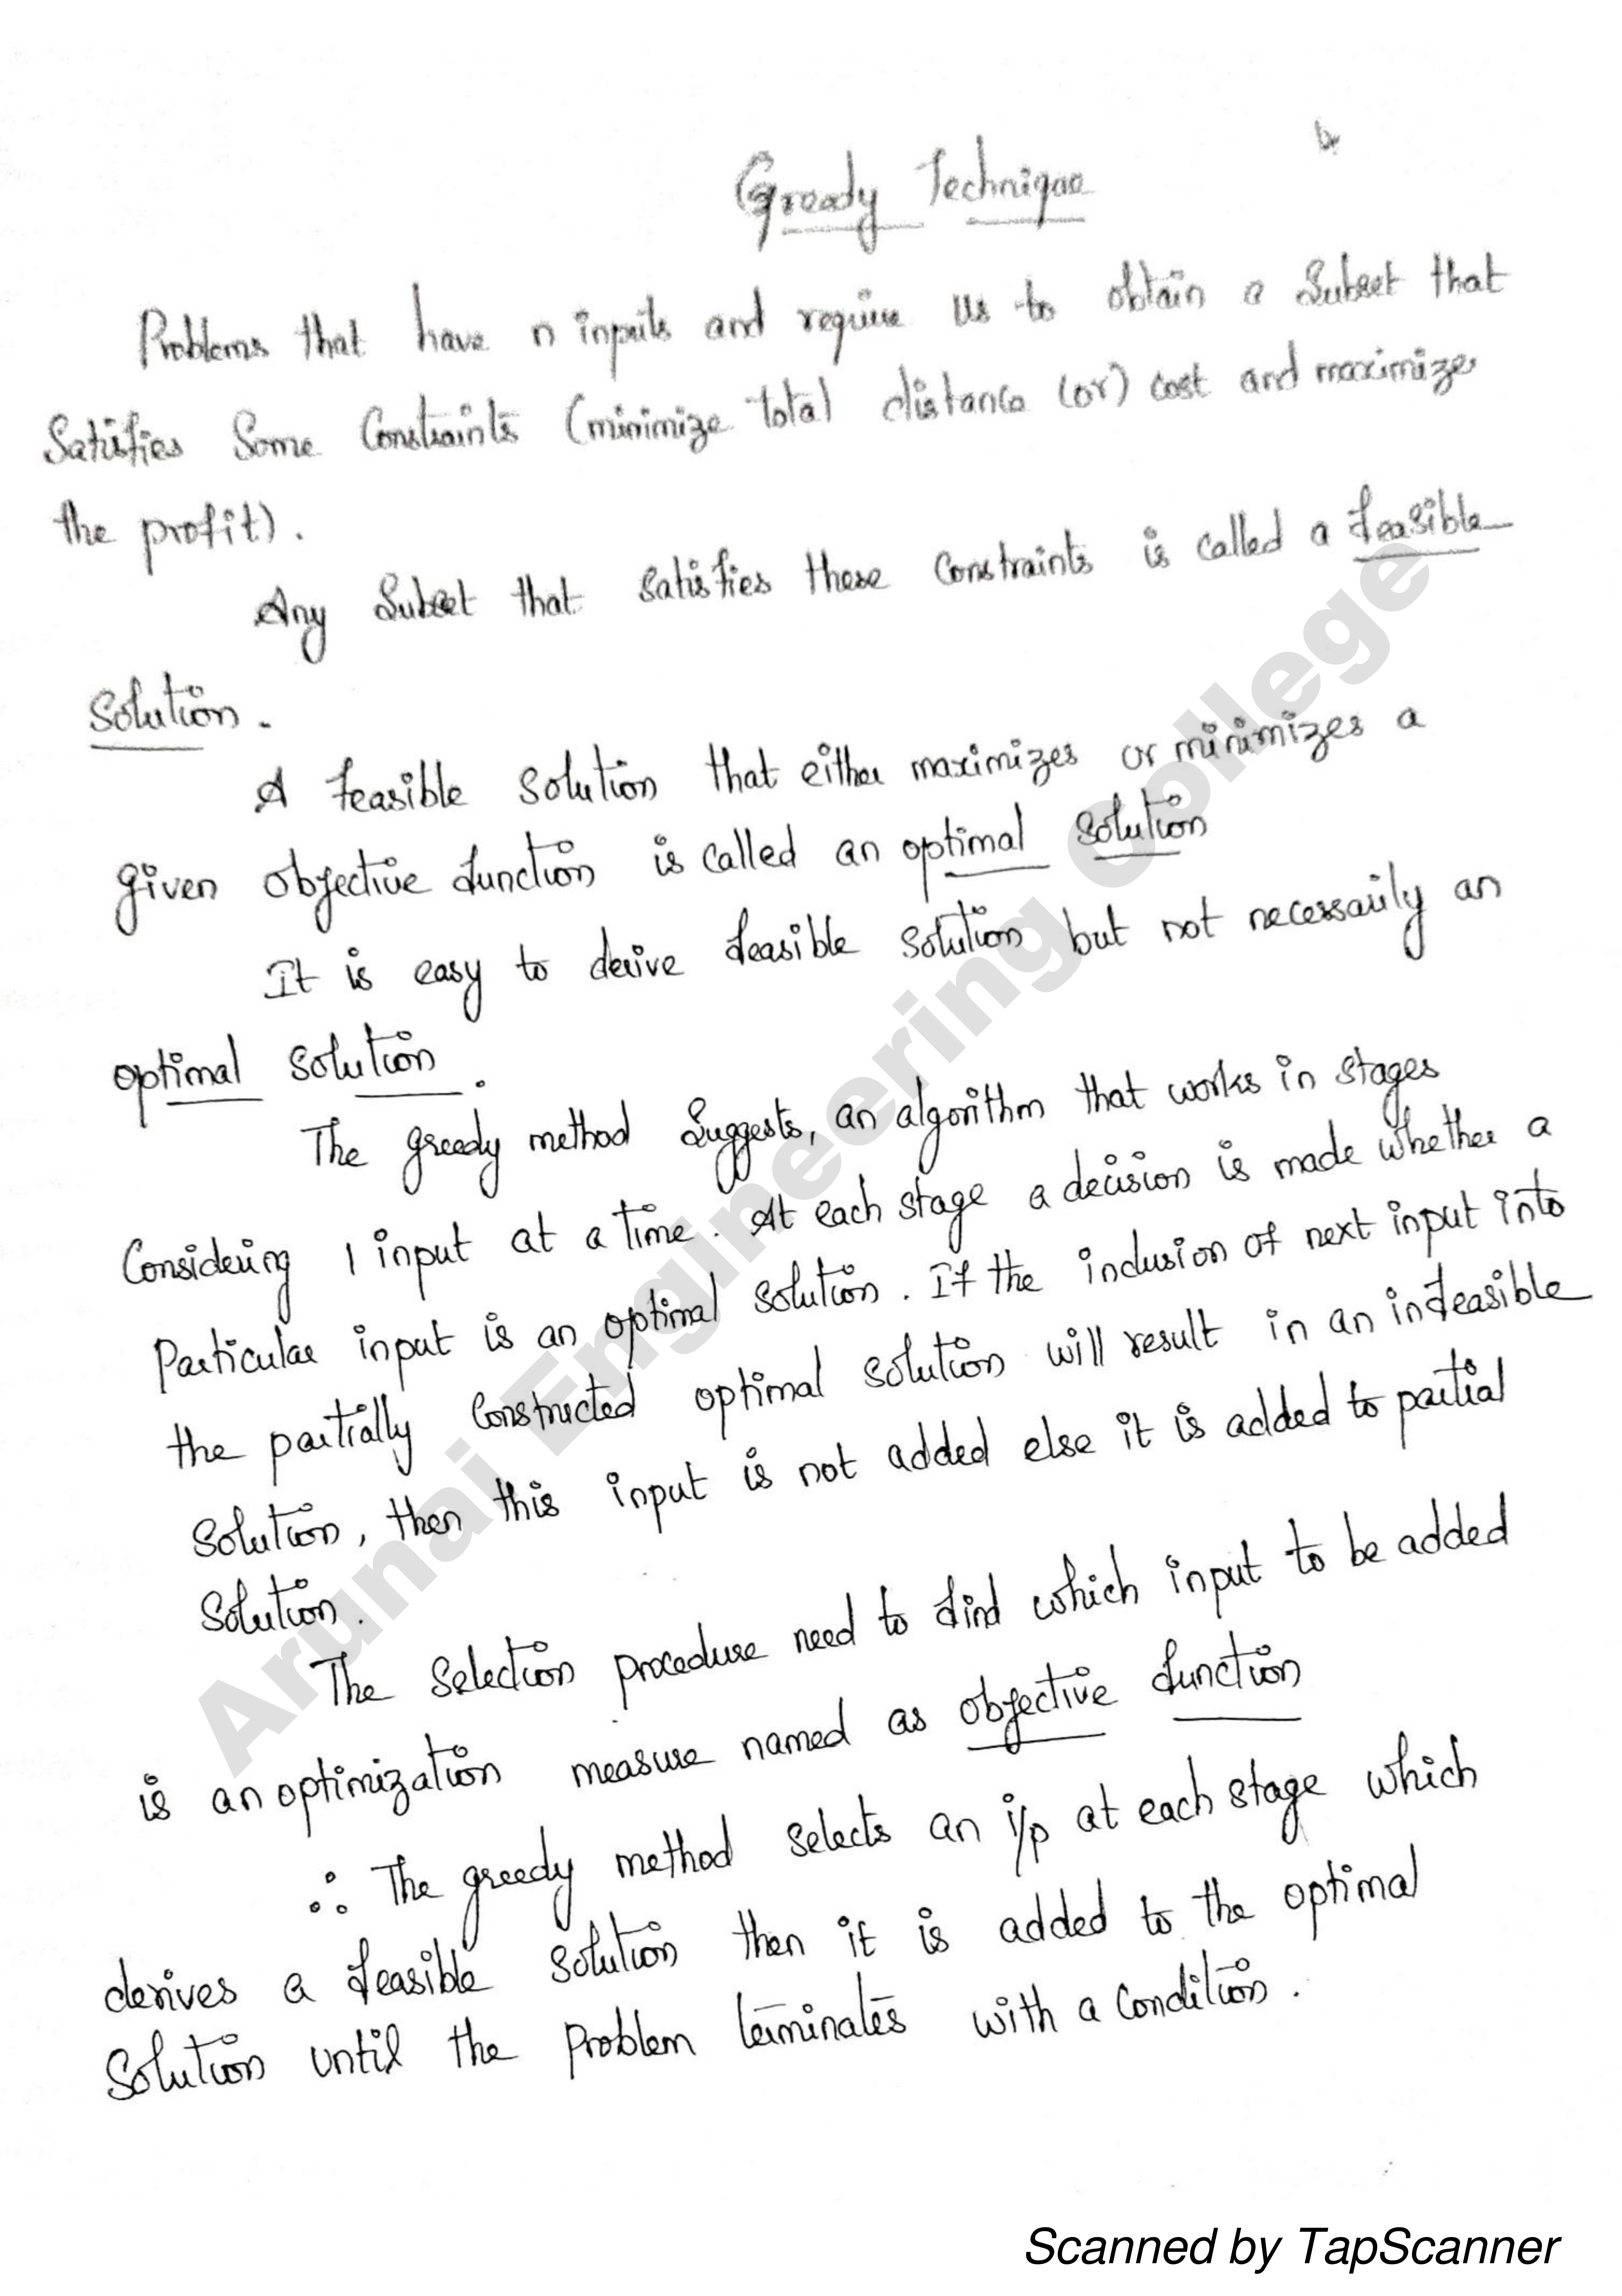 Greedy Technique
Problems that have n inputs and require us to obtain a Subset that
Satisfies Some Constraints (minimize total distance (or) cost and maximize
the profit).
Any Subset that satisfies these constraints is called a feasible
Solution.
A feasible solution that either maximizes or minimizes a
given objective function is called an optimal solution
It is easy to derive feasible solution but not necessarily an
optimal solution.
The greedy method Suggests, an algorithm that works in stages
Considering 1 input at a time. At each stage a decision is made whether a
Particular input is an optimal solution. If the inclusion of next input into
the partially Constructed optimal solution will result in an infeasible
Solution, then this input is not added else it is added to partial
Solution.
The Selection procedure need to find which input to be added
is an optimization measure named as objective function
∴ The greedy method selects an i/p at each stage which
derives a feasible solution then it is added to the optimal
Solution until the problem terminates with a condition.
Arunai Engineering College
Scanned by TapScanner